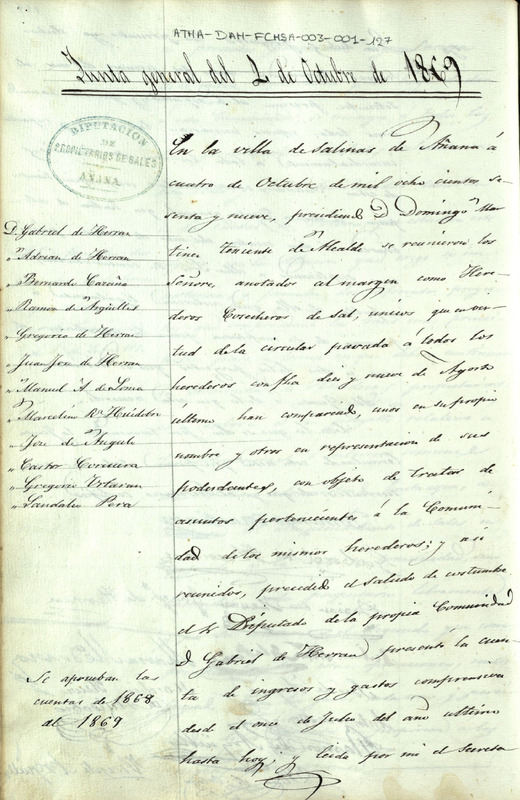 ATHA-DAH-FCHSA-003-001-127
Junta general del 4 de Octubre de 1869
DIPUTACION
DE
PROPIETARIOS DE SALES
AÑANA
D. Gabriel de Herran
" Adrian de Herran
" Bernardo Cariño
" Ramon de Argüelles
" Gregorio de Herran
" Juan Jose de Herran
" Manuel A. de Loma
" Marcelino Rz. Huidobro
" Jose de Angulo
" Castor Corcuera
" Gregorio Urtaran
" Sandalio Pera
En la villa de Salinas de Añana á
cuatro de Octubre de mil ocho cientos se
senta y nueve, presidiendo D. Domingo Mar
tinez Teniente de Alcalde se reunieron los
Señores, anotados al margen como Here-
deros Cosecheros de sal, unicos que en vir
tud de la circular pasada á todos los
herederos con fha diez y nueve de Agosto
ultimo han comparecido, unos en su propio
nombre y otros en representacion de sus
poderdantes, con objeto de tratar de
asuntos pertenecientes á la Comuni-
dad de los mismos herederos; y asi
reunidos, precedido el saludo de costumbre
el Sr. Diputado de la propia Comunidad
D. Gabriel de Herran presentó la cuen-
ta de ingresos y gastos comprensiva
desde el once de Julio del año ultimo
hasta hoy; y leida por mi el secreta
Se aprueban las
cuentas de 1868
al 1869